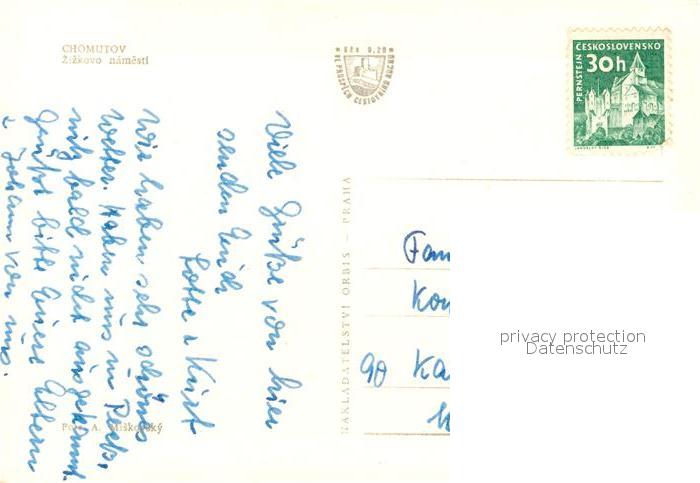 CHOMUTOV
Žižkovo náměstí
Kčs 0,20
VE PROSPĚCH CESTOVNÍHO RUCHU
ČESKOSLOVENSKO
30h
PERNŠTEJN
Viele Grüße von hier
senden Euch
Lotte u Kurt
Wir haben sehr schönes
Wetter. Haben uns in
bald nicht ausgekannt.
Grüßt bitte Euere Eltern
u Johann von uns.
Foto A. Miškovský
NAKLADATELSTVÍ ORBIS — PRAHA
Fam
Kon
90 Ka
privacy protection
Datenschutz